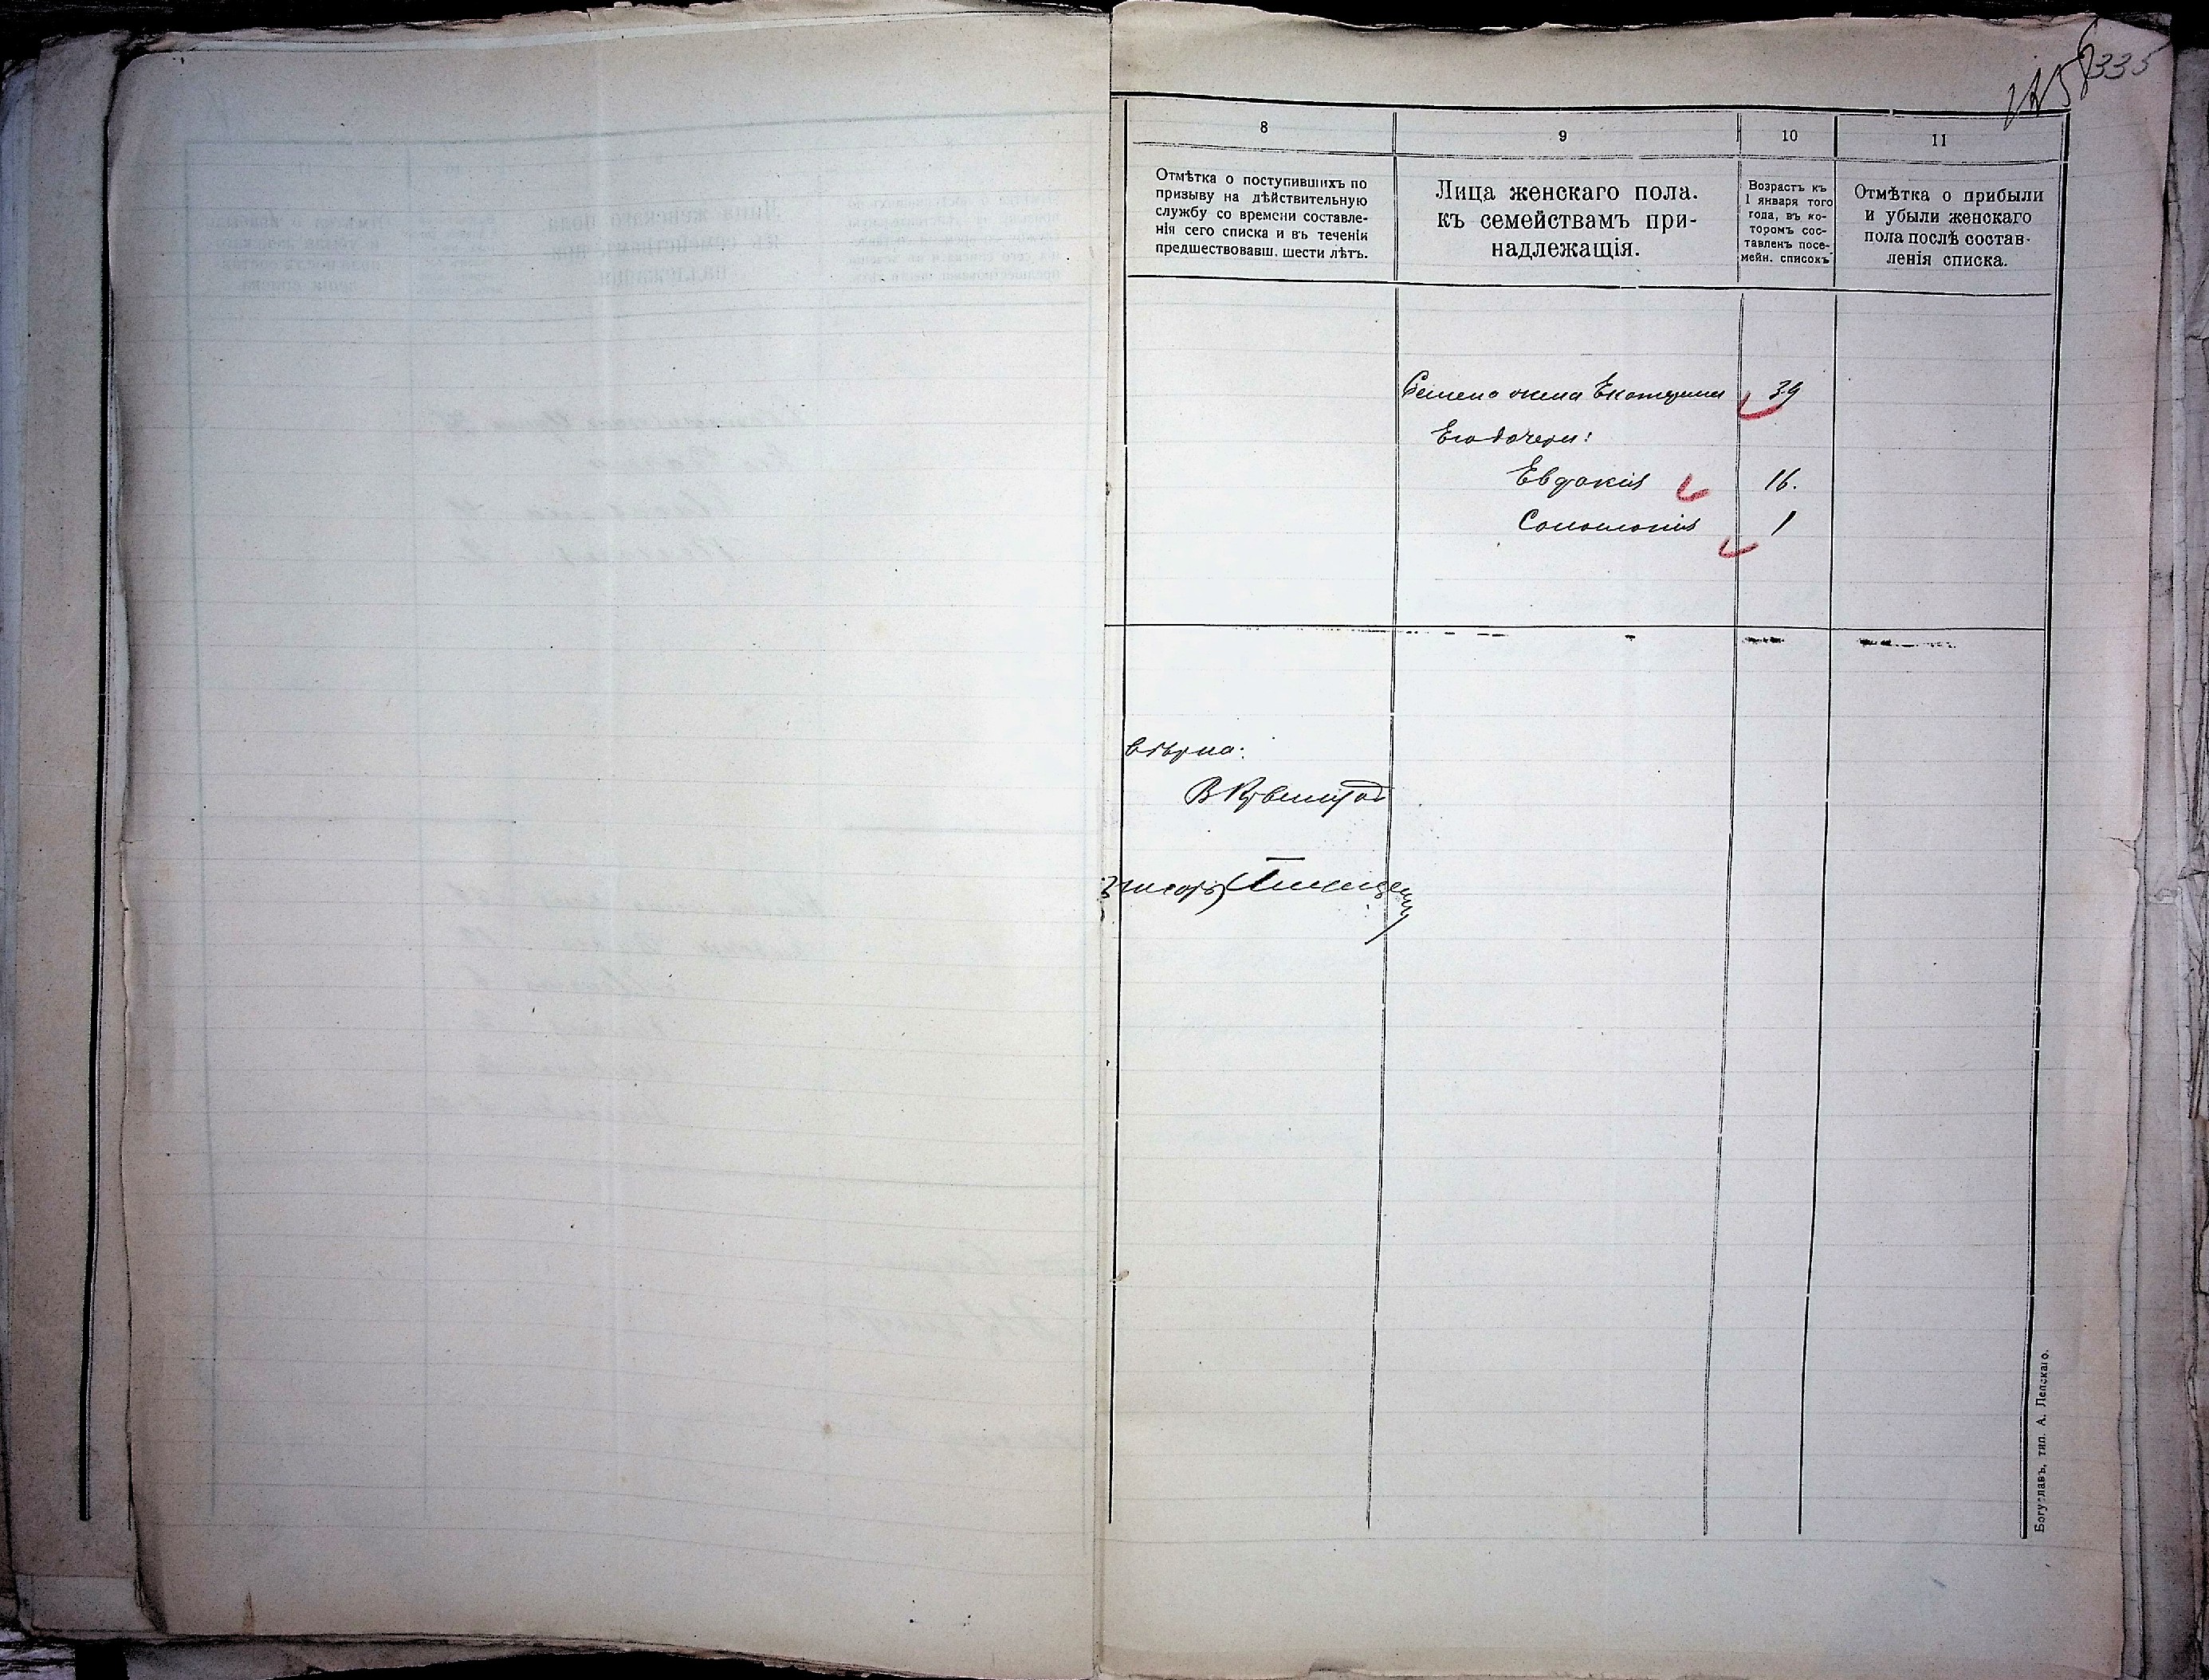 335
8
9
10
11
Отмѣтка о поступившихъ по
призыву на дѣйствительную
службу со времени составле-
нія сего списка и въ теченіи
предшествовавш. шести лѣтъ.
Лица женскаго пола.
къ семействамъ при-
надлежащія.
Возрастъ къ
1 января того
года, въ ко-
торомъ сос-
тавленъ посе-
мейн. списокъ
Отмѣтка о прибыли
и убыли женскаго
пола послѣ состав-
ленія списка.
Семена жена Екатерина 39
Его дочери:
Евдокия 16.
Соломония 1
вѣрно:
Богуславъ, тип. А. Лепскаго.